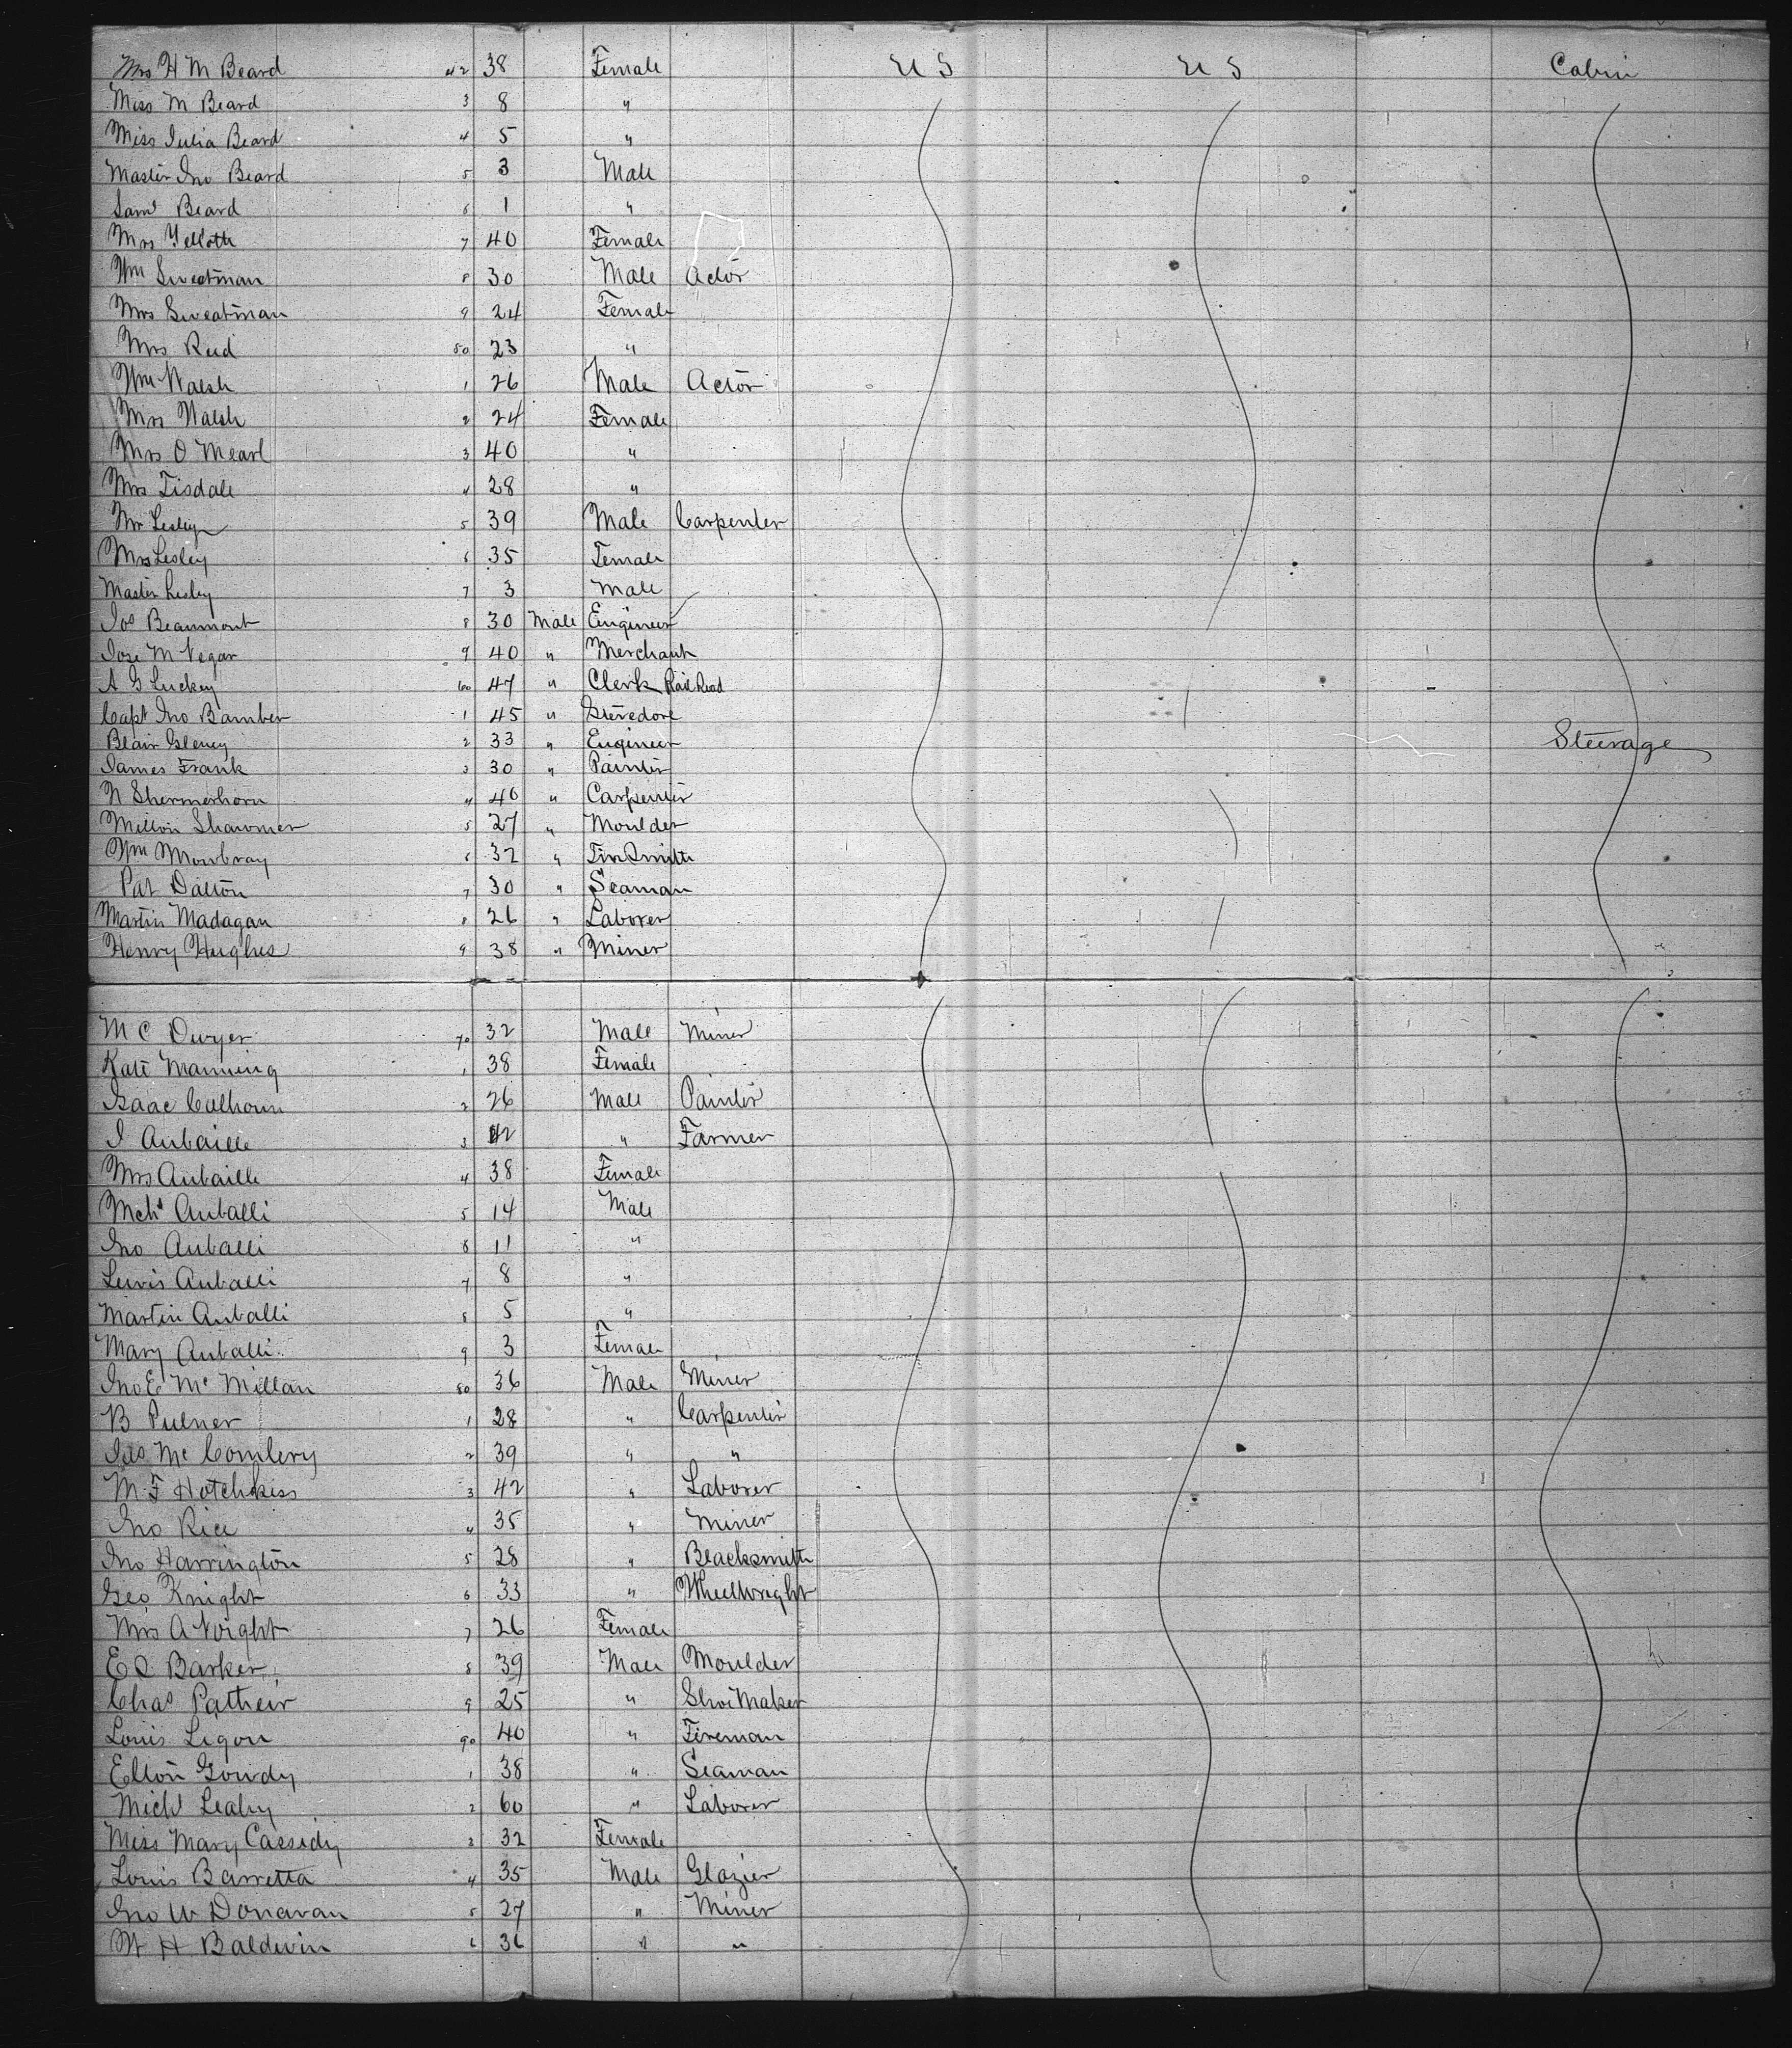 Mrs H M Beard 42 38 Female U S U S Cabin
Miss M Beard 3 8 "
Miss Julia Beard 4 5 "
Master Jno Beard 5 3 Male
Saml Beard 6 1 "
Mrs 7 40 Female
Wm Sweatman 8 30 Male Actor
Mrs Sweatman 9 24 Female
Mrs Reid 50 23 "
Wm Walsh 1 26 Male Actor
Mrs Walsh 2 24 Female
Mrs O Mearl 3 40 "
Mrs Tisdale 4 28 "
Mr Lesley 5 39 Male Carpenter
Mrs Lesley 6 35 Female
Master Lesley 7 3 Male
Jos Beaumont 8 30 Male Engineer
Jose M Vegar 9 40 " Merchant
A G Luckey 60 47 " Clerk Rail Road
Capt Jno Bamber 1 45 " Stevedore
Blair Gleney 2 33 " Engineer Steerage
James Frank 3 30 " Painter
N Shermerhorn 4 40 " Carpenter
Milton Shawmer 5 27 " Moulder
Wm Mowbray 6 32 " Tin Smith
Pat Dalton 7 30 " Seaman
Martin Madagan 8 26 " Laborer
Henry Hughes 9 38 " Miner
M C Dwyer 70 32 Male Miner
Kate Manning 1 38 Female
Isaac Calhoun 2 26 Male Painter
J Anbaille 3 42 " Farmer
Mrs Anbaille 4 38 Female
Mchl Anballi 5 14 Male
Jno Anballi 6 11 "
Lewis Anballi 7 8 "
Martin Anballi 8 5 "
Mary Anballi 9 3 Female
Jno E Mc Millan 80 36 Male Miner
B Pulner 1 28 " Carpenter
Jas Mc Comlery 2 39 " "
M F Hotchkiss 3 42 " Laborer
Jno Rice 4 35 " Miner
Jno Harrington 5 28 " Blacksmith
Geo Knight 6 33 " Wheelwright
Mrs A Voight 7 26 Female
E S Barker 8 39 Male Moulder
Chas Patheir 9 25 " Shoe Maker
Louis Ligon 90 40 " Fireman
Elton Gowdy 1 38 " Seaman
Michl Leahy 2 60 " Laborer
Miss Mary Cassidy 3 32 Female
Louis Barretta 4 35 Male Glazier
Jno W Donavan 5 27 " Miner
W H Baldwin 6 36 " "